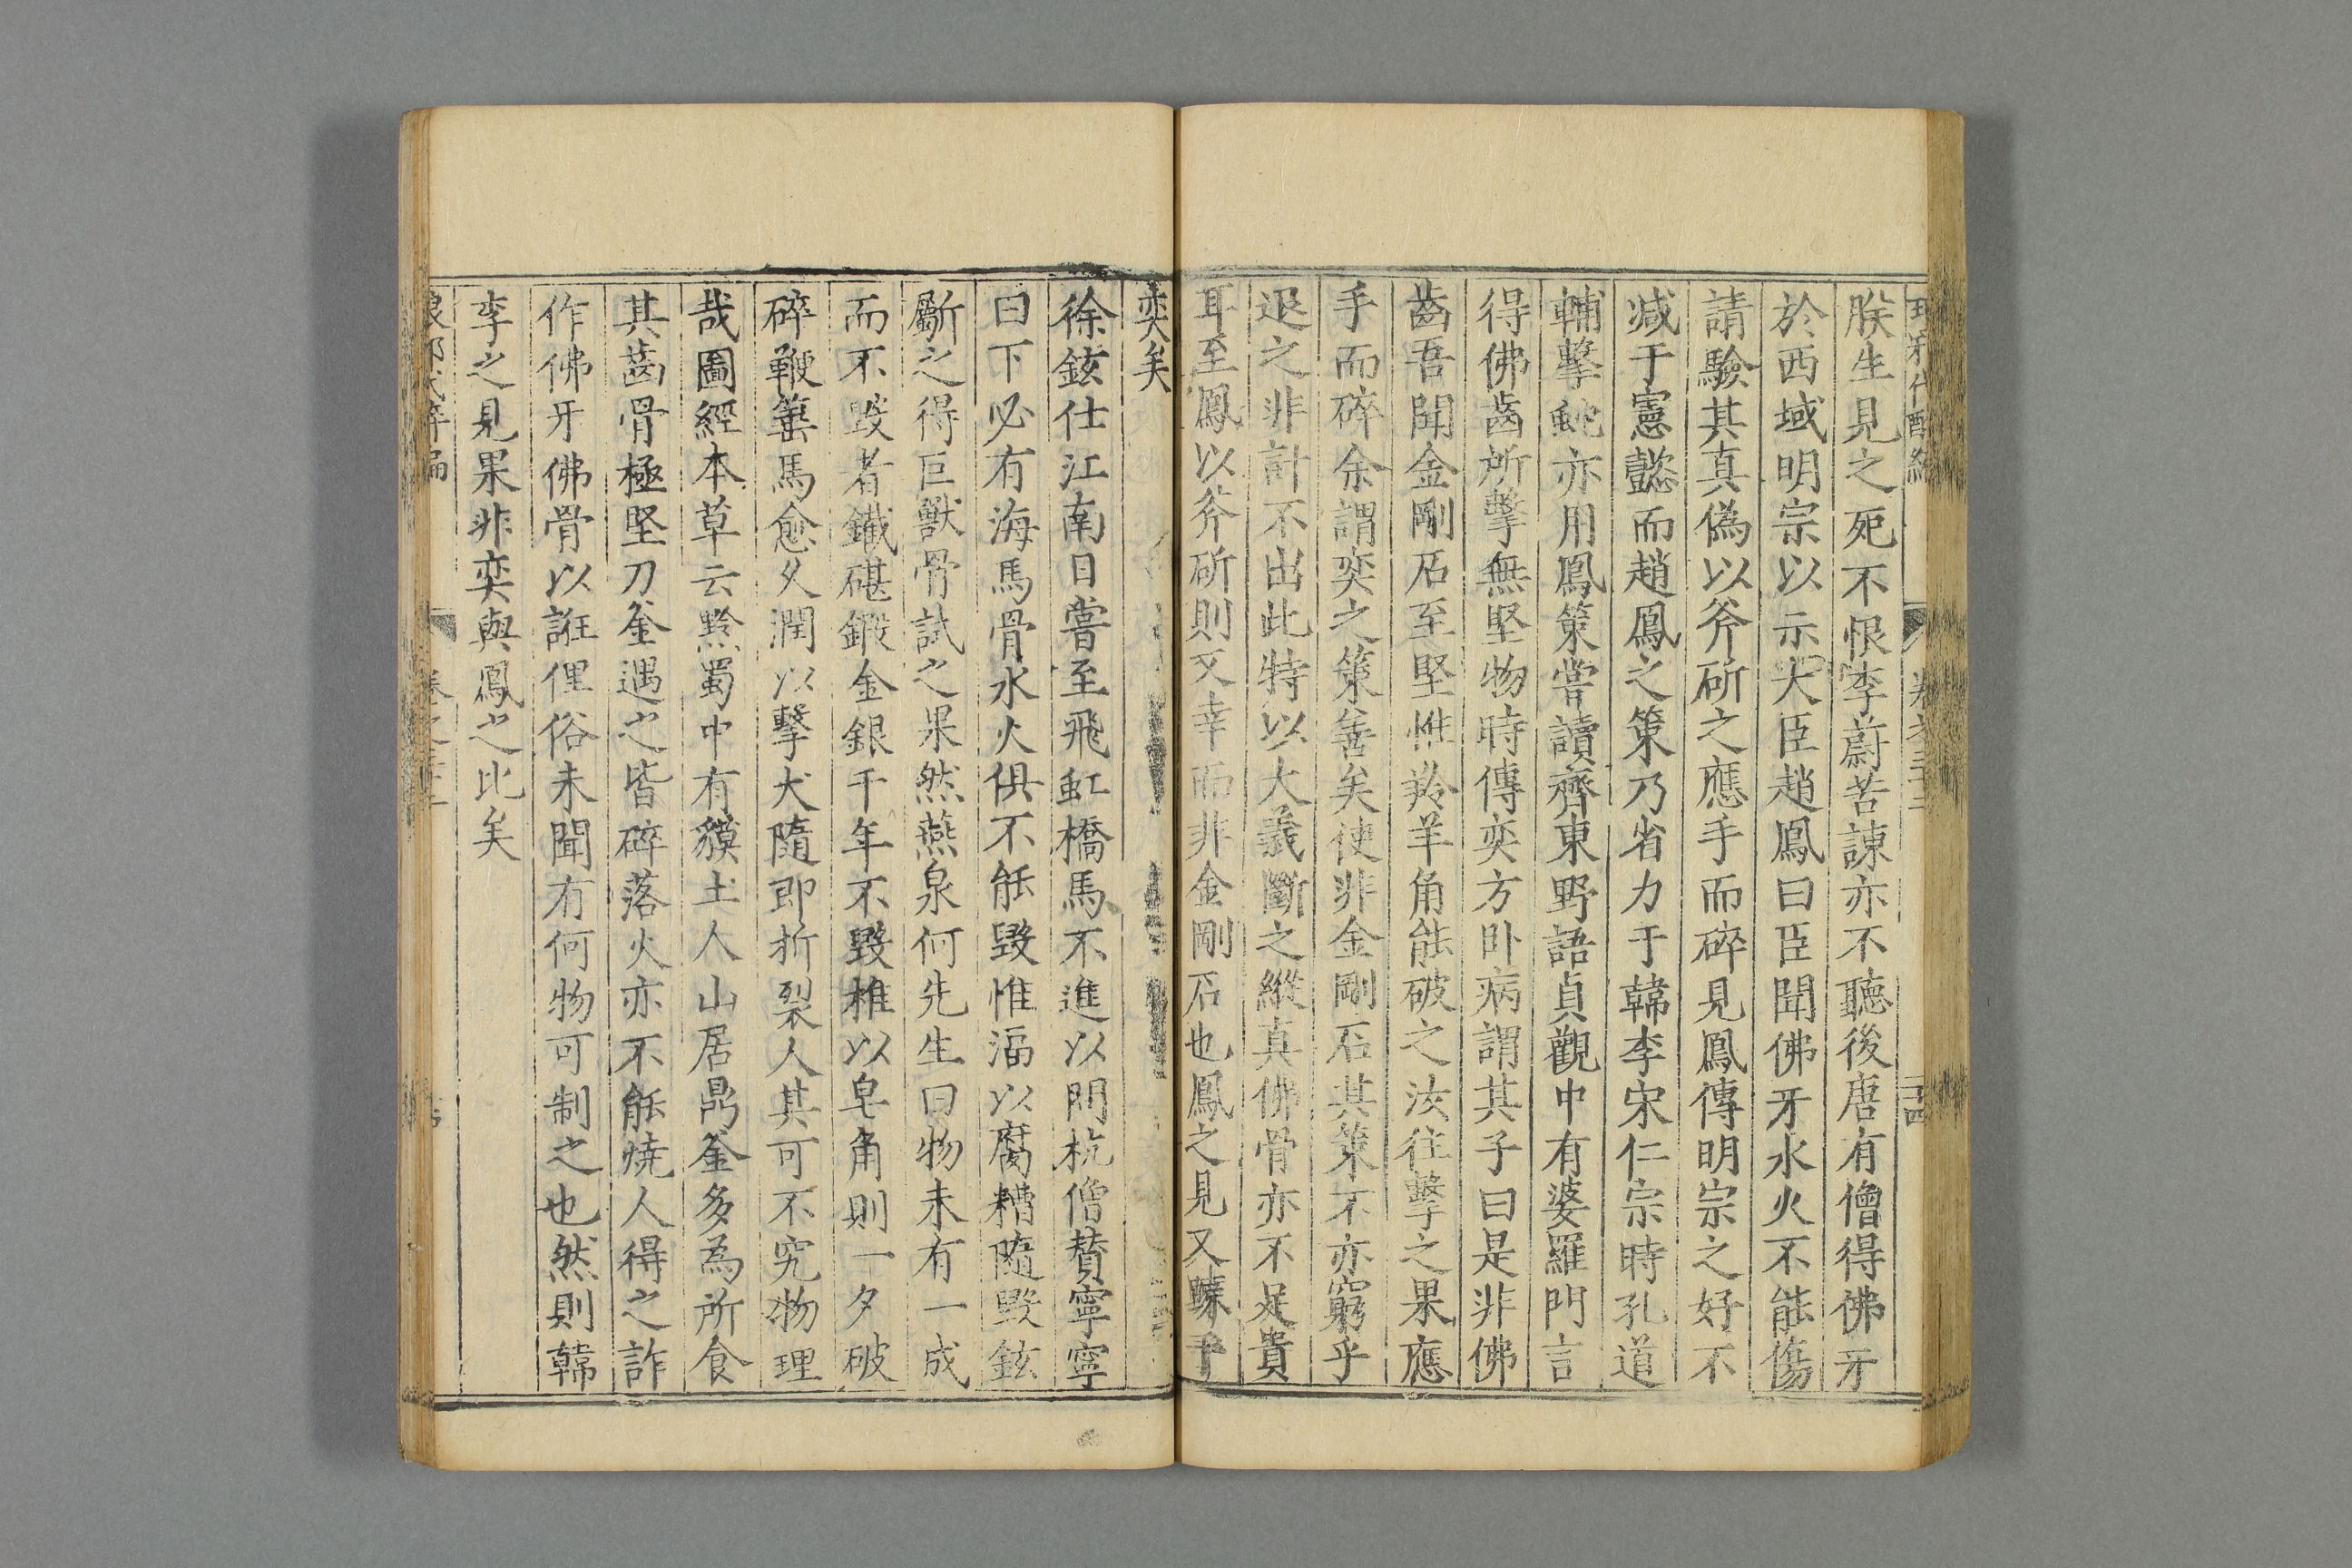 朕生見之死不恨李蔚苦諫亦不聽後唐有僧得佛牙
於西域明宗以示大臣趙鳳曰臣聞佛牙水火不能傷
請驗其真偽以斧斫之應手而碎見鳳傳明宗之好不
減于憲懿而趙鳳之策乃省力于韓李宋仁宗時孔道
輔擊蛇亦用鳳策嘗讀齊東野語貞觀中有婆羅門言
得佛齒所擊無堅物時傳奕方臥病謂其子曰是非佛
齒吾聞金剛石至堅惟羚羊角能破之汝往擊之果應
手而碎余謂奕之策善矣使非金剛石其策不亦窮乎
退之非計不出此特以大義斷之縱真佛骨亦不足貴
耳至鳳以斧斫則又幸而非金剛石也鳳之見又踈乎
奕矣
徐鉉仕江南日嘗至飛虹橋馬不進以問杭僧贊寧寧
曰下必有海馬骨水火俱不能毀惟漚以腐糟隨毀鉉
斸之得巨獸骨試之果然燕泉何先生曰物未有一成
而不毀者鐵碪鍛金銀千年不毀椎以皂角則一夕破
碎鞭箠馬愈久潤以擊犬隨即折裂人其可不究物理
哉圖經本草云黔蜀中有貘土人山居鼎釜多為所食
其齒骨極堅刀釜遇之皆碎落火亦不能燒人得之詐
作佛牙佛骨以誑俚俗未聞有何物可制之也然則韓
李之見果非奕與鳳之比矣